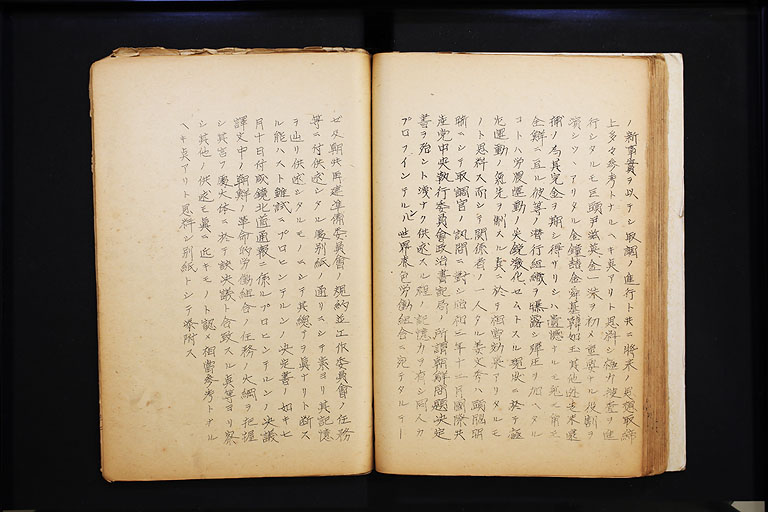 ノ新事實ヲ以テシ取調ノ進行ト共ニ將来ノ思想取締
上多々参考トナルヘキ点アリト思料シ極力捜査ヲ進
行シタルモ巨頭尹滋英金一洙ヲ初メ重要ナル役割ヲ
演シツヽアリタル金鐘喆金舜基韓如玉其他逃走未逮
捕ノ為其完全ヲ期シ得サリシハ遺憾ナルモ
全鮮ニ亘ル彼等ノ潜行組織ヲ曝露シ弾圧ヲ加ヘタル
コトハ労農運動ノ尖鋭激化セムトスル現状ニ於テ
左翼運動ノ気先ヲ制スル点ニ於テ相當効果アリタルモ
ノト思料ス而シテ関係者ノ一人タル姜文秀ハ頭脳明
晰ニシテ取調官ノ訊問ニ對シ昭和 年十二月國際共
産党中央執行委員會政治書記局ノ所謂朝鮮問題決定
書ヲ殆ント残ナク供述スル程ノ記憶力ヲ有シ同人カ
プロフインテルン世界 色労働組合ニ宛テタルテー
ゼ及朝共再建準備委員會ノ規約並工作委員會ノ任務
等ニ付供述シタル處別紙ノ通リニシテ素ヨリ其記憶
ヲ辿リ供述シタルモノニシテ其總テヲ眞ナリト断ス
ル能ハスト雖試ニプロヒンテルンノ決定書ノ如キ七
月十日付咸鏡北道通報ニ係ルプロヒンテルンノ決議
譯文中ノ朝鮮ノ革命的労働組合ノ任務ノ大綱ヲ把握
シ其言フ處大体ニ於テ該決議ト合致スル点等ヨリ察
シ其他ノ供述モ眞ニ近キモノト認メ相當参考トナル
ヘキ点アリト思料シ別紙トシテ添附ス